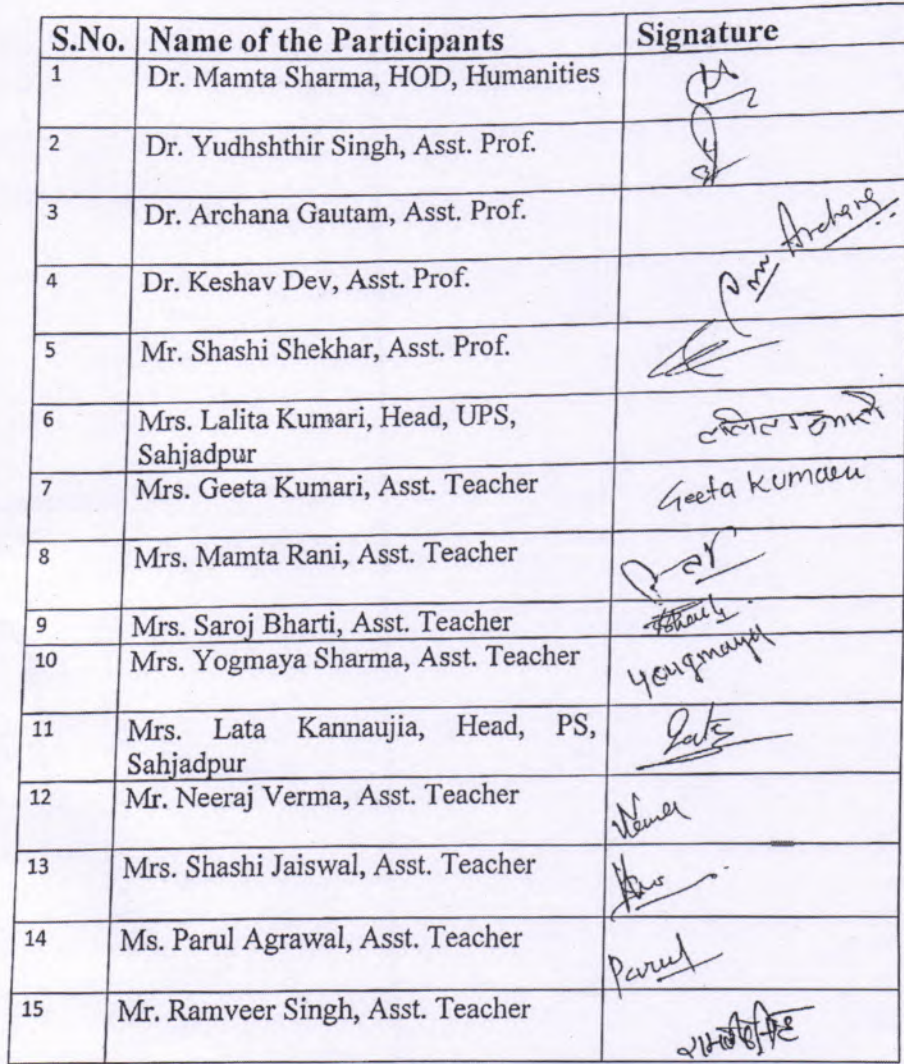 S.No. Name of the Participants Signature
1 Dr. Mamta Sharma, HOD, Humanities
2 Dr. Yudhshthir Singh, Asst. Prof.
3 Dr. Archana Gautam, Asst. Prof. Archana
4 Dr. Keshav Dev, Asst. Prof.
5 Mr. Shashi Shekhar, Asst. Prof.
6 Mrs. Lalita Kumari, Head, UPS,
Sahjadpur
7 Mrs. Geeta Kumari, Asst. Teacher Geeta Kumari
8 Mrs. Mamta Rani, Asst. Teacher
9 Mrs. Saroj Bharti, Asst. Teacher
10 Mrs. Yogmaya Sharma, Asst. Teacher Yougmaya
11 Mrs. Lata Kannaujia, Head, PS, Lata
Sahjadpur
12 Mr. Neeraj Verma, Asst. Teacher
13 Mrs. Shashi Jaiswal, Asst. Teacher
14 Ms. Parul Agrawal, Asst. Teacher Parul
15 Mr. Ramveer Singh, Asst. Teacher